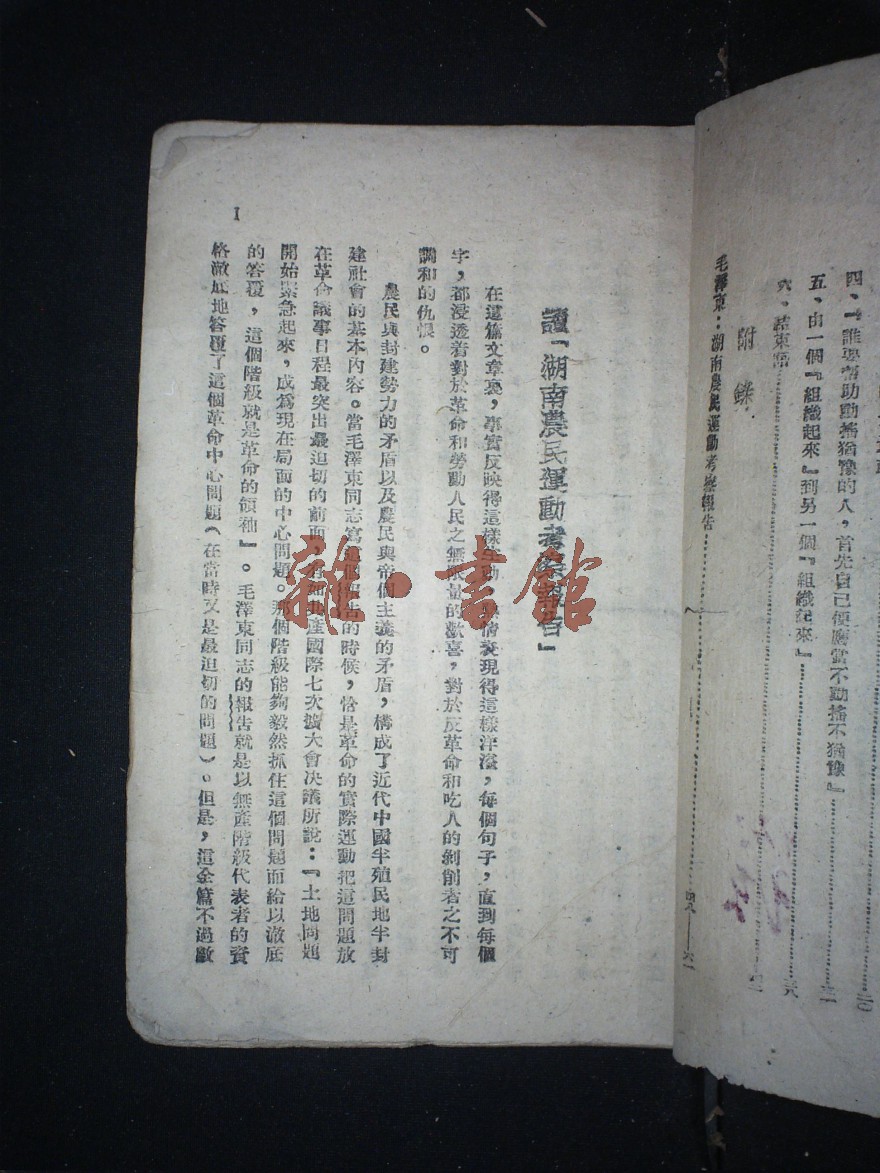 四、『誰要幫助動搖猶豫的人，首先自己便應當不動搖不猶豫』
五、由一個『組織起來』到另一個『組織起來』
六、結束語
附錄
毛澤東：湖南農民運動考察報告
讀「湖南農民運動考察報告」
在這篇文章裏，事實反映得這樣生動，熱情表現得這樣洋溢，每個句子，直到每個
字，都浸透着對於革命和勞動人民之無限量的歡喜，對於反革命和吃人的剝削者之不可
調和的仇恨。
農民與封建勢力的矛盾以及農民與帝國主義的矛盾，構成了近代中國半殖民地半封
建社會的基本內容。當毛澤東同志寫這個報告的時候，常是革命的實際運動把這問題放
在革命議事日程最突出最迫切的前面，有如共產國際七次擴大會決議所說：『土地問題
開始緊急起來，成爲現在局面的中心問題。那個階級能夠毅然抓住這個問題而給以澈底
的答覆，這個階級就是革命的領袖』。毛澤東同志的報告就是以無產階級代表者的資
格澈底地答覆了這個革命中心問題（在當時又是最迫切的問題）。但是，這全篇不過數
1
雜·書館